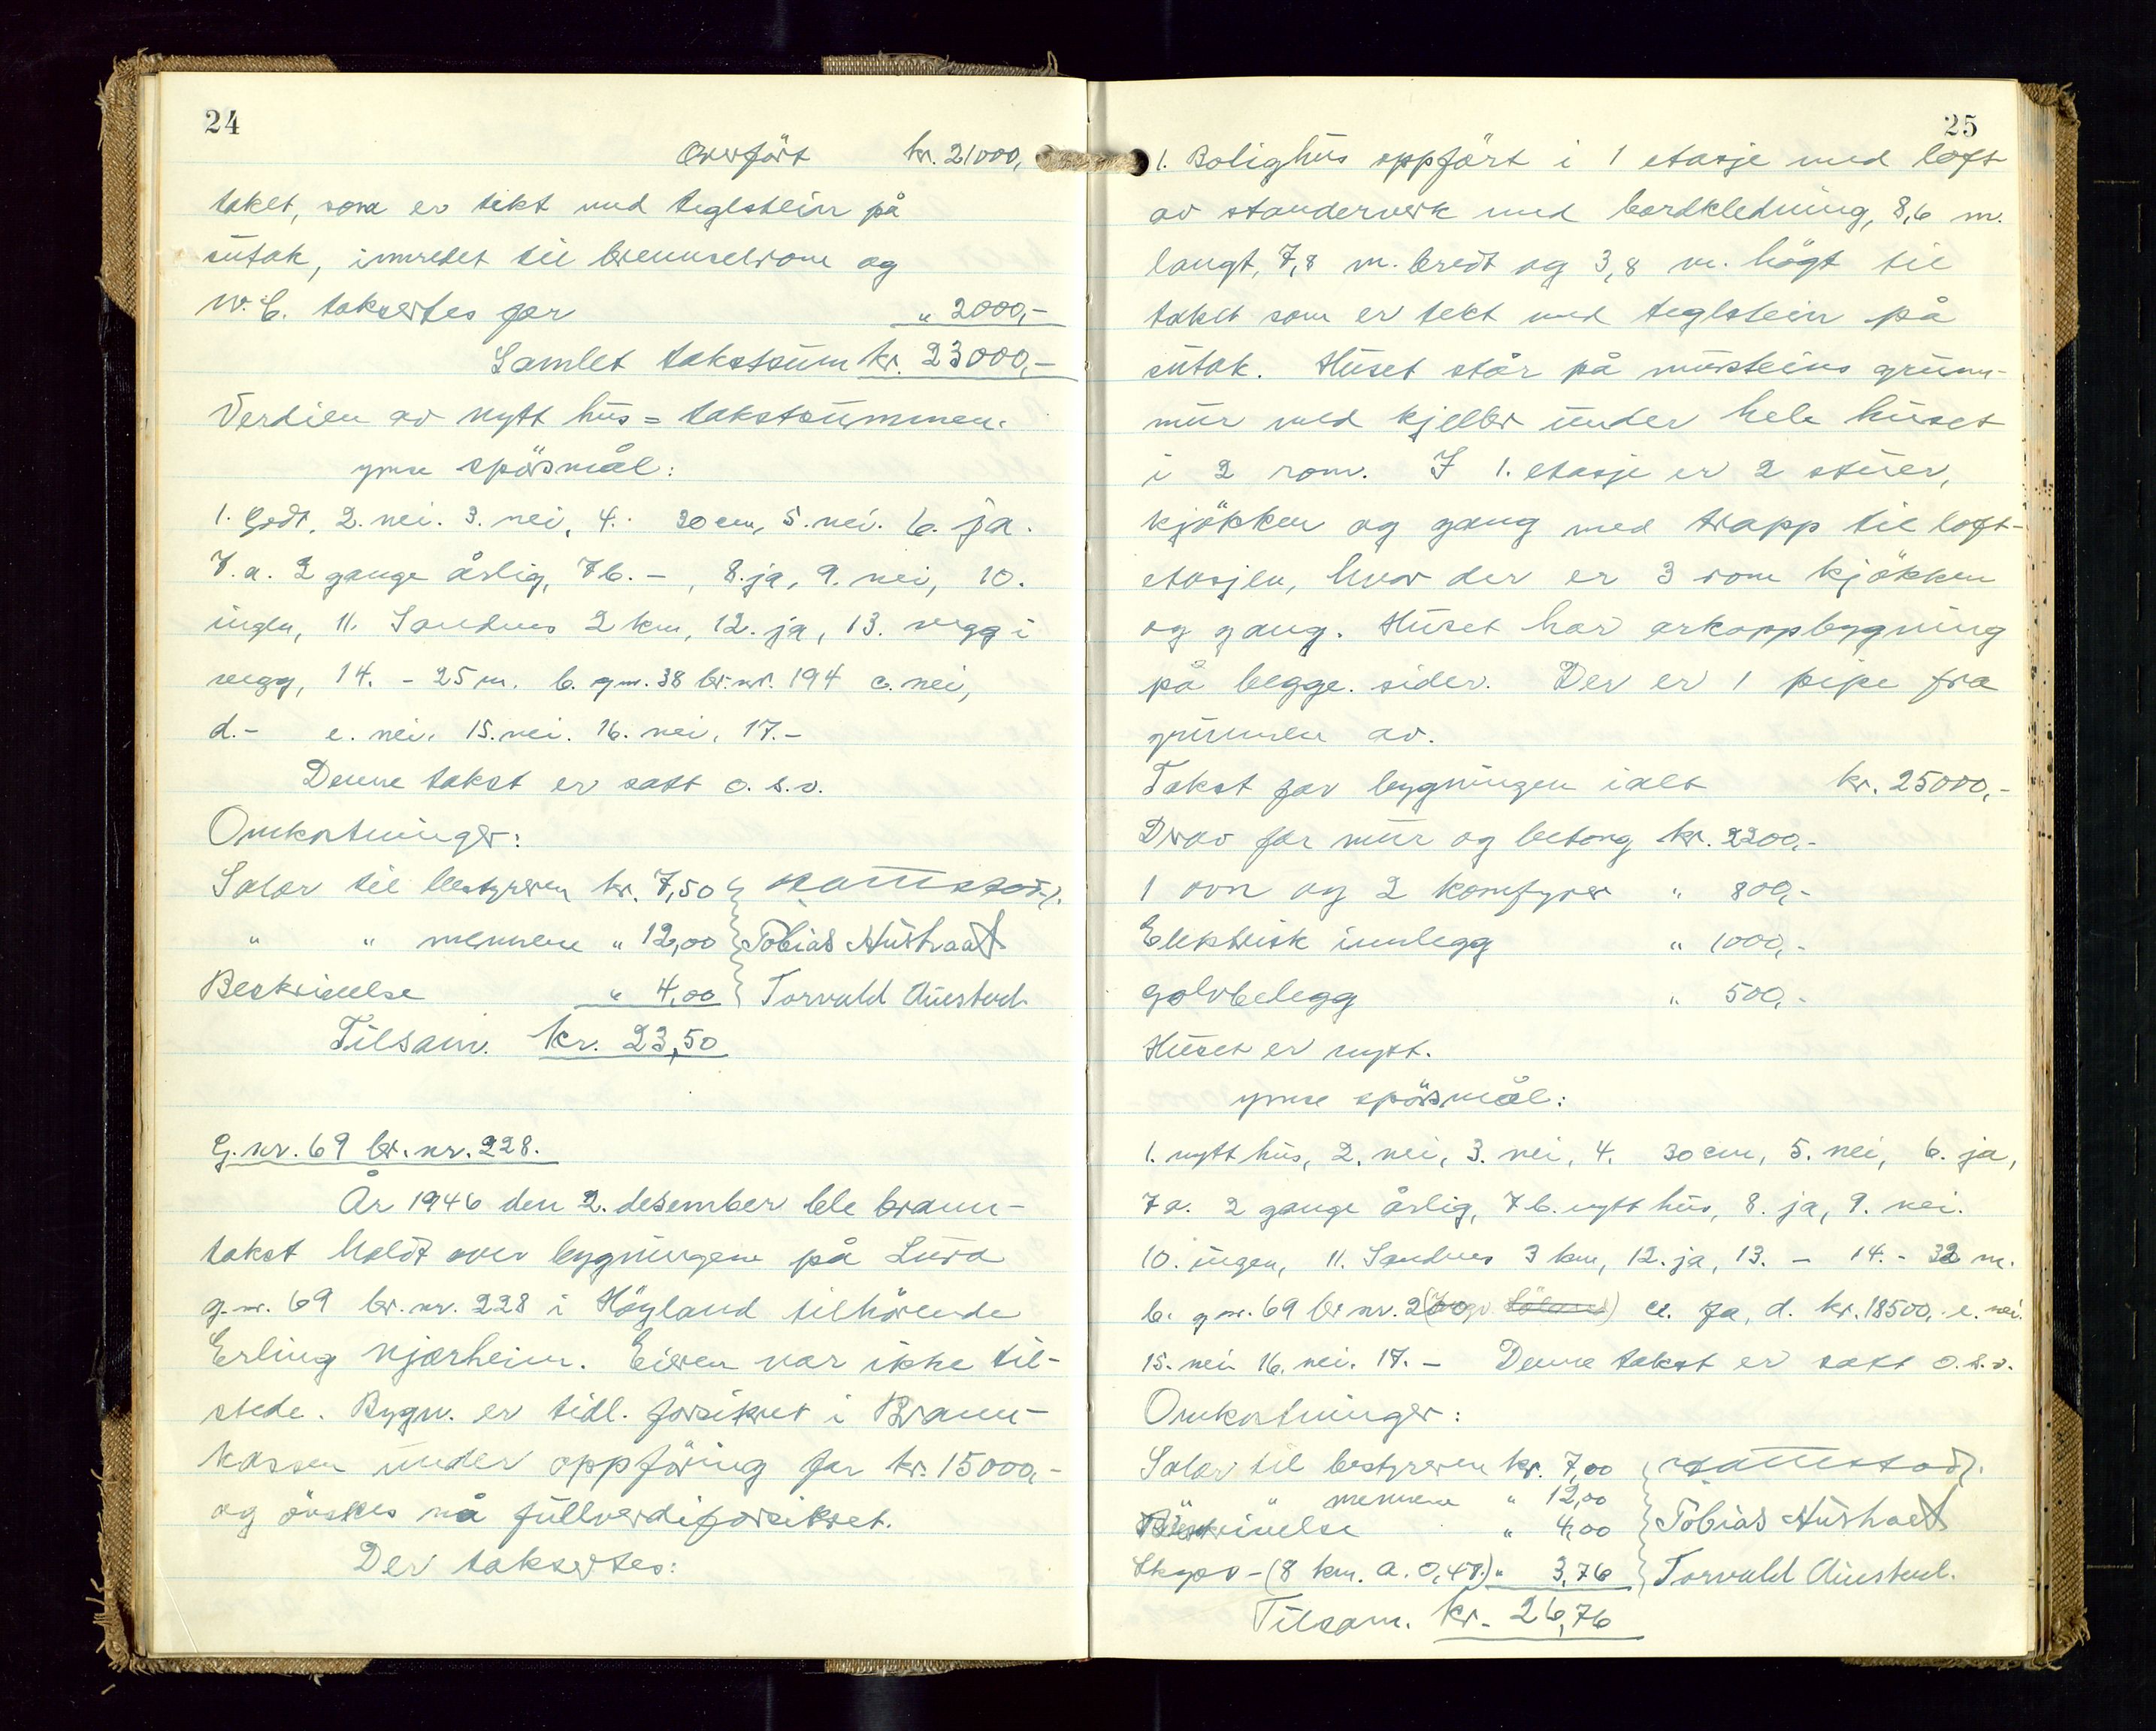 24
Overført kr. 21000,
taket, som er tekt med teglstein på
sutak, innredet til brenselrom og
W.C. taksertes for " 2000,-
Samlet takstsum kr. 23000,-
Verdien av nytt hus = takstsummen.
ymse spörsmål:
1. Godt, 2. nei. 3. nei, 4. 30 cm, 5. nei. 6. ja.
7.a. 2 gange årlig, 7b. - , 8. ja, 9. nei, 10.
ingen, 11. Sandnes 2 km, 12. ja, 13. vegg i
vegg, 14. - 25 m. b. gnr. 38 br.nr. 194 c. nei,
d.- e. nei. 15. nei. 16. nei, 17.-
Denne takst er satt o.s.v.
Omkostninger:
Salær til bestyreren kr. 7,50
" " mennene " 12,00 Tobias Austraat
Beskrivelse " 4,00 Torvald Auestad
Tilsam. kr. 23,50
G.nr. 69 br.nr. 228.
År 1946 den 2. desember ble brann-
takst holdt over bygningene på Lura
g.nr. 69 br.nr. 228 i Höyland tilhörende
Erling Njærheim. Eieren var ikke til-
stede. Bygn. er tidl. forsikret i Brann-
kassen under oppföring for kr. 15000,-
og önskes nå fullverdiforsikret.
Der taksertes:
25
1. Bolighus oppfört i 1 etasje med loft
av standerverk med bordkledning, 8,6 m.
langt, 7,8 m. bredt og 3,8 m. högt til
taket som er tekt med teglstein på
sutak. Huset står på mursteins grunn-
mur med kjeller under hele huset
i 2 rom. I 1. etasje er 2 stuer,
kjökken og gang med trapp til loft-
etasjen, hvor der er 3 rom kjökken
og gang. Huset har arkoppbygning
på begge sider. Der er 1 pipe fra
grunnen av.
Takst for bygningen ialt kr. 25000,-
Derav for mur og betong kr. 2200,-
1 ovn og 2 komfyrer " 800,-
Elektrisk innlegg " 1000,-
golvbelegg " 500,-
Huset er nytt.
ymse spörsmål:
1. nytt hus, 2. nei, 3. nei, 4. 30 cm, 5. nei, 6. ja,
7a. 2 gange årlig, 7b. nytt hus, 8. ja, 9. nei.
10. ingen, 11. Sandnes 3 km, 12. ja, 13. - 14. - 32 m.
b. gnr. 69 br.nr. c. ja, d. kr. 18500,- e. nei.
15. nei 16. nei. 17. - Denne takst er satt o.s.v.
Omkostninger:
Salær til bestyreren kr. 7,00
" mennene " 12,00
Beskrivelse " 4,00 Tobias Austraat
Skyss - (8 km. a. 0,47.) " 3,76 Torvald Auestad.
Tilsam. kr. 26,76